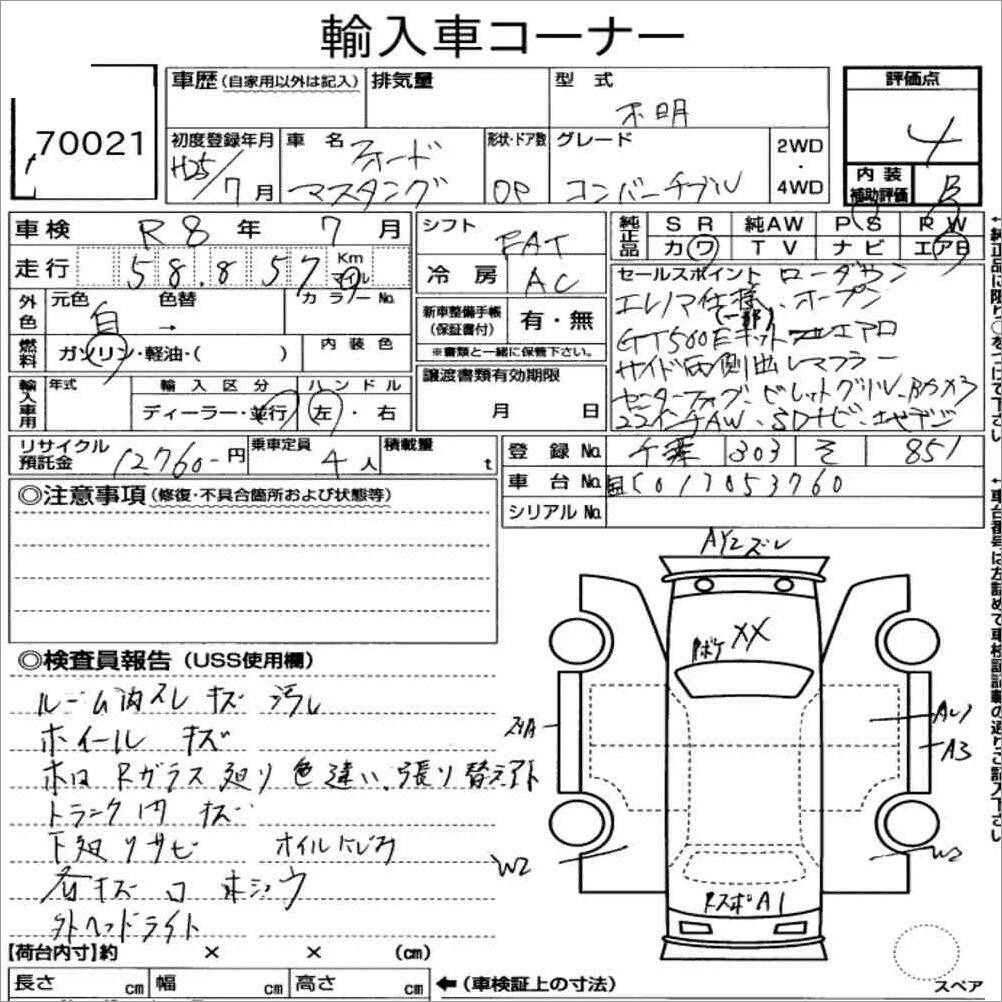 輸入車コーナー
70021
車歴 (自家用以外は記入) 排気量 型式 不明
評価点 4
初度登録年月 H25/7月
車名 フォード マスタング
形状・ドア数 OP
グレード コンバーチブル
2WD・4WD
内装補助評価 B
車検 R8年 7月
シフト FAT
純正品 SR 純AW PS RW
カワ TV ナビ エアB
走行 58,857 Km マイル
冷房 AC
外色 元色 白 色替 → カラーNo.
燃料 ガソリン・軽油・( ) 内装色
新車整備手帳(保証書付) 有・無
※書類と一緒に保管下さい。
輸入車用 年式 輸入区分 ディーラー・並行 ハンドル 左・右
譲渡書類有効期限 月 日
セールスポイント ローダウン
エレノア仕様(一部)、オープン
GT500Eキット エアロ
サイド両側出しマフラー
センターフォグ、ビレットグリル、Bカメラ
22インチAW、SDナビ、地デジ
リサイクル預託金 12760-円
乗車定員 4人
積載量 t
登録No. 千葉 303 そ 851
車台No. 国[01]053760
シリアルNo.
◎注意事項 (修復・不具合箇所および状態等)
◎検査員報告 (USS使用欄)
ルーム内スレ キズ 汚れ
ホイール キズ
ホロ Rガラス廻り 色違い、張り替えアト
トランク内 キズ
下廻りサビ オイルにじみ
各キズ凹 ホシュウ
外ヘッドライト
AY2ズレ
ボケ XX
AU1
A3
W2
W2
RスポA1
【荷台内寸】約 × × (cm)
長さ cm 幅 cm 高さ cm
←(車検証上の寸法)
スペア
←純正品に限り○をつけて下さい
←車台番号は左詰めで車検証記載の通りご記入下さい